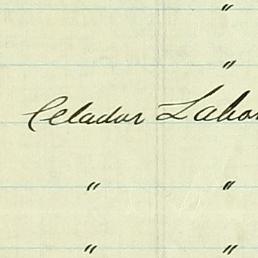 "
"
Celador Labor
" "
" "